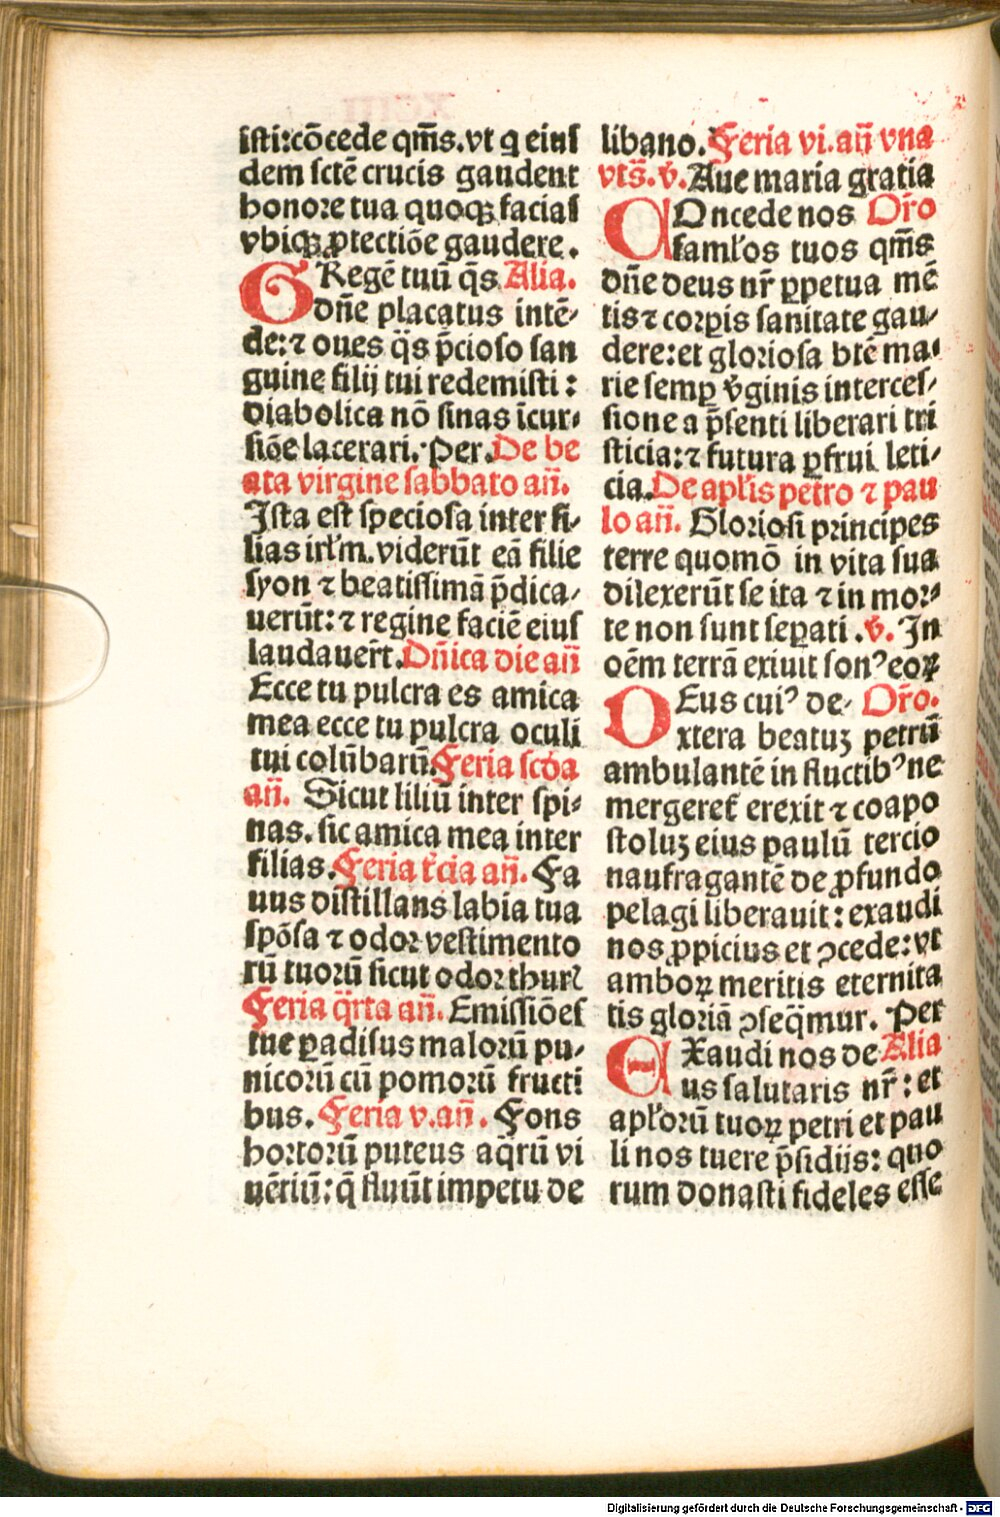 isti:cōcede qm̄s.vt q eiuſ
dem ſctē crucis gaudent
honore tua quoqꝫ faciaſ
vbiqꝫ ꝓtectiōe gaudere.
GRegē tuū q̄s Alia.
dn̄e placatus intē-
de:⁊ oues q̄s p̄cioſo ſan
guine filij tui redemiſti:
diabolica nō ſinas īcur-
ſiōe lacerari. Per. De be
ata virgine ſabbato an̄.
Iſta eſt ſpecioſa inter fi-
lias irlm̄.viderūt eā filie
ſyon ⁊ beatiſſimā p̄dica-
uerūt:⁊ regine faciē eiuſ
laudauer̄t. Dn̄ica die an̄
Ecce tu pulcra es amica
mea ecce tu pulcra oculi
tui colūbarū. Feria ſcd̄a
an̄. Sicut liliū inter ſpi-
nas. ſic amica mea inter
filias. Feria t̄cia an̄. Fa
uus diſtillans labia tua
ſpōſa ⁊ odor veſtimento
rū tuorū ſicut odor thurꝭ
Feria q̄rta an̄. Emiſſiōeſ
tue ꝑadiſus malorū pu-
nicorū cū pomorū fructi
bus. Feria v.an̄. Fons
hortorū puteus aq̄rū vi
uētiū:q̄ fluūt impetu de
libano. Feria vi.an̄ vna
vts̄.v̄. Aue maria gratia
COncede nos Or̄o
famlos tuos qm̄s
dn̄e deus nr̄ ꝑpetua mē
tis ⁊ corꝑis ſanitate gau-
dere:et glorioſa btē ma-
rie ſemꝑ v̄ginis interceſ-
ſione a p̄ſenti liberari tri
ſticia:⁊ futura ꝑfrui leti-
cia. De apl̄is petro ⁊ pau
lo an̄. Glorioſi principes
terre quomō in vita ſua
dilexerūt ſe ita ⁊ in mor-
te non ſunt ſeꝑati .v̄. In
oēm terrā exiuit ſonꝰ eoꝝ
DEus cuiꝰ de- Or̄o.
xtera beatuꝫ petrū
ambulantē in fluctibꝰ ne
mergeret̄ erexit ⁊ coapo
ſtoluꝫ eius paulū tercio
naufragantē de ꝓfundo
pelagi liberauit:exaudi
nos ꝓpicius et ꝯcede:vt
amboꝝ meritis eternita
tis gloriā ꝯſeq̄mur. Per
EXaudi nos de Alia
us ſalutaris nr̄:et
apl̄orū tuoꝝ petri et pau
li nos tuere p̄ſidijs: quo
rum donaſti fideles eſſe
Digitalisierung gefördert durch die Deutsche Forschungsgemeinschaft - DFG